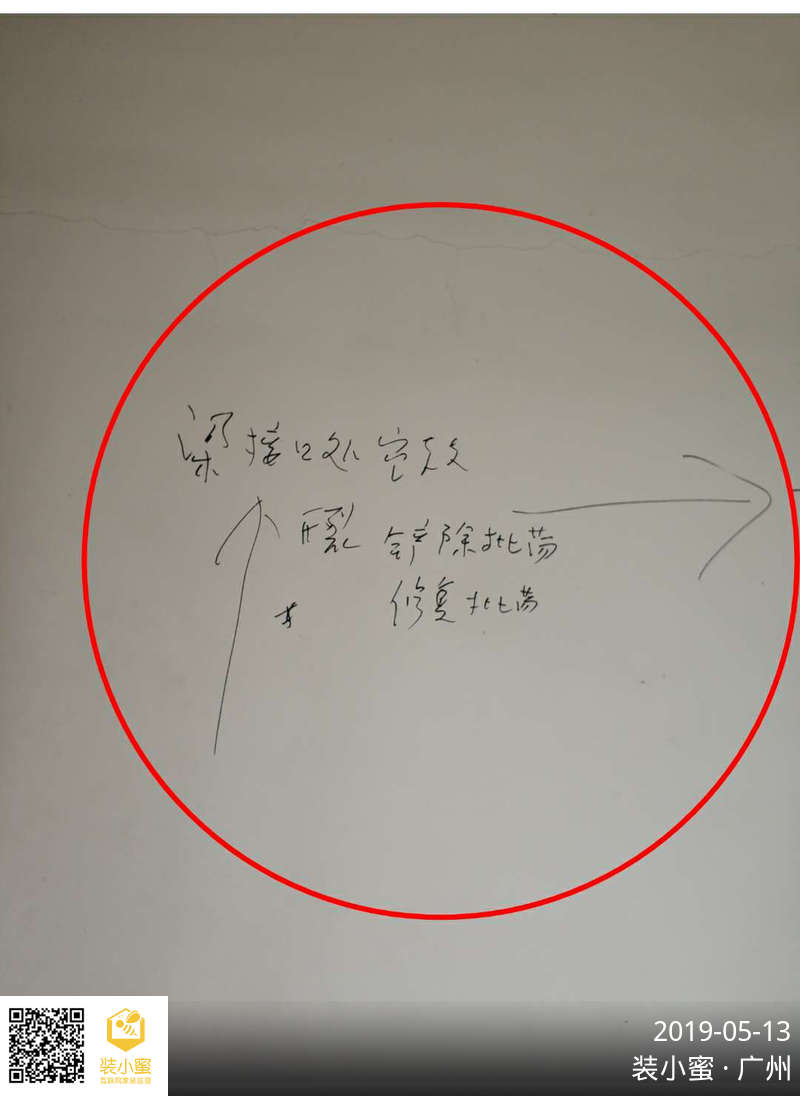 梁接口处空鼓
开裂 铲除批荡
修复批荡
2019-05-13
装小蜜·广州
装小蜜
互联网家装监理